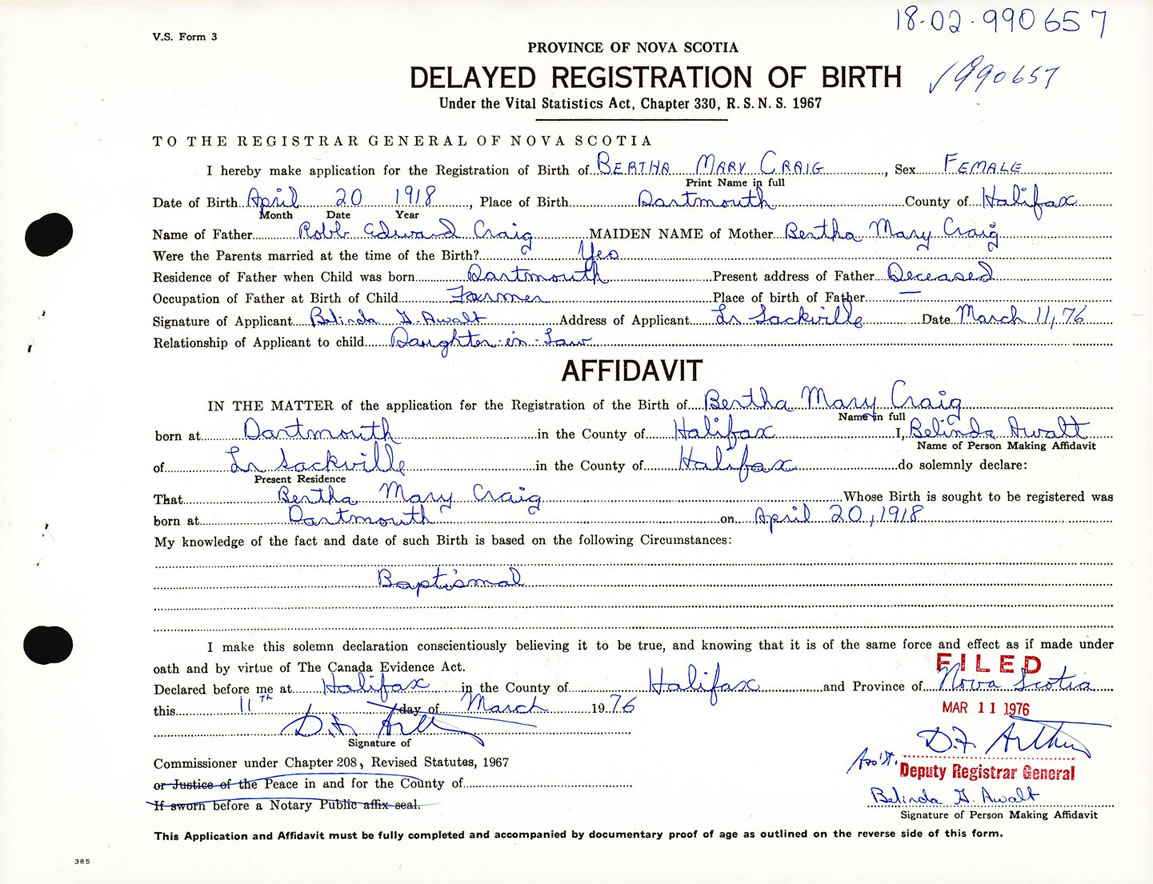 18-02-990657
V.S. Form 3
PROVINCE OF NOVA SCOTIA
DELAYED REGISTRATION OF BIRTH
√990657
Under the Vital Statistics Act, Chapter 330, R. S. N. S. 1967
TO THE REGISTRAR GENERAL OF NOVA SCOTIA
I hereby make application for the Registration of Birth of BERTHA MARY CRAIG, Sex FEMALE
Print Name in full
Date of Birth April 20 1918, Place of Birth Dartmouth County of Halifax
Month Date Year
Name of Father Robb Edward Craig MAIDEN NAME of Mother Bertha Mary Craig
Were the Parents married at the time of the Birth? Yes
Residence of Father when Child was born Dartmouth Present address of Father Deceased
Occupation of Father at Birth of Child Farmer Place of birth of Father —
Signature of Applicant Belinda G. Awalt Address of Applicant Lr Sackville Date March 11, 76
Relationship of Applicant to child Daughter-in-Law
AFFIDAVIT
IN THE MATTER of the application for the Registration of the Birth of Bertha Mary Craig
Name in full
born at Dartmouth in the County of Halifax I, Belinda Awalt
Name of Person Making Affidavit
of Lr Sackville in the County of Halifax do solemnly declare:
Present Residence
That Bertha Mary Craig Whose Birth is sought to be registered was
born at Dartmouth on April 20, 1918
My knowledge of the fact and date of such Birth is based on the following Circumstances:
Baptismal
I make this solemn declaration conscientiously believing it to be true, and knowing that it is of the same force and effect as if made under
oath and by virtue of The Canada Evidence Act.
FILED
Declared before me at Halifax in the County of Halifax and Province of Nova Scotia
this 11th day of March 1976
MAR 11 1976
D.F. Arthur
Signature of
D.F. Arthur
Commissioner under Chapter 208, Revised Statutes, 1967
Ass't. Deputy Registrar General
or Justice of the Peace in and for the County of
Belinda G. Awalt
If sworn before a Notary Public affix seal.
Signature of Person Making Affidavit
This Application and Affidavit must be fully completed and accompanied by documentary proof of age as outlined on the reverse side of this form.
385